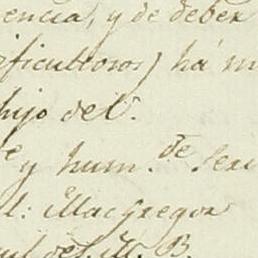 encia, y de deber
rficultosos) há m
hijo de V.
te y hum. de Serv
l: MacGregor
ul de S. M. B.